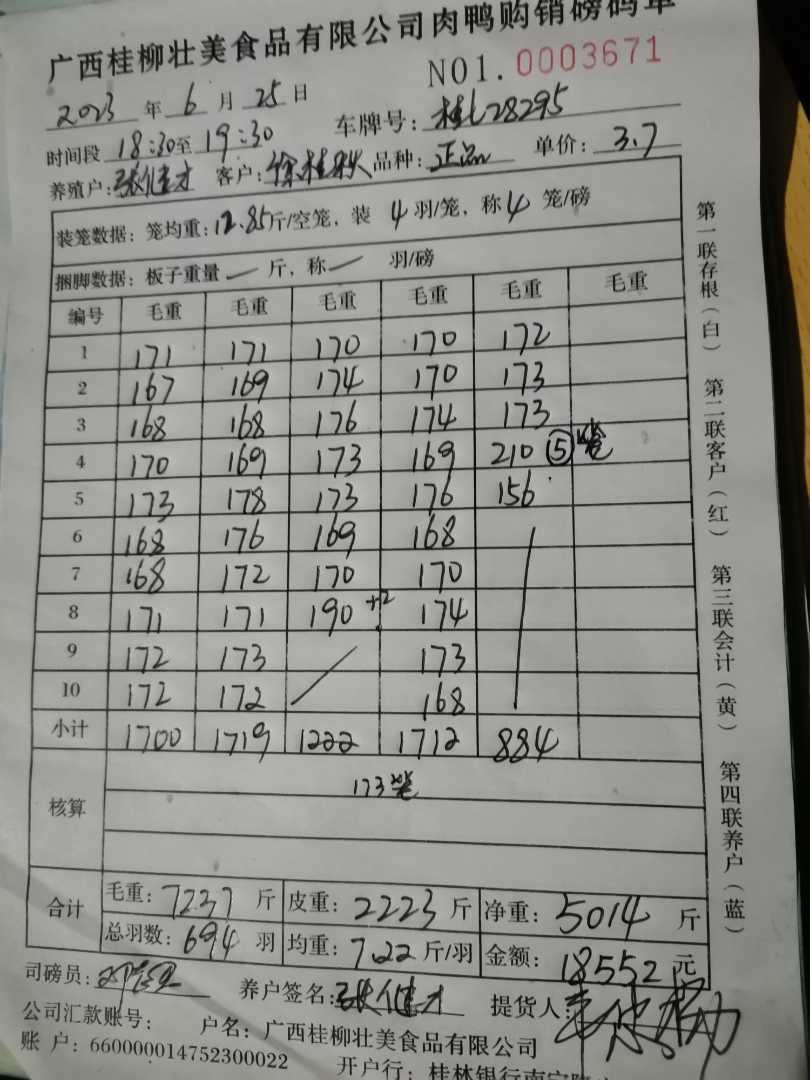 广西桂柳壮美食品有限公司肉鸭购销磅码单
NO1.0003671
2023 年 6 月 25 日
车牌号: 桂L28295
时间段 18:30至 19:30
品种: 正品 单价: 3.7
养殖户: 张健才 客户: 徐桂秋
装笼数据: 笼均重: 12.85斤/空笼, 装 4 羽/笼, 称 4 笼/磅
捆脚数据: 板子重量 — 斤, 称 — 羽/磅
编号 毛重 毛重 毛重 毛重 毛重 毛重
1 171 171 170 170 172
2 167 169 174 170 173
3 168 168 176 174 173
4 170 169 173 169 210 ⑤笼
5 173 178 173 176 156
6 168 176 169 168
7 168 172 170 170
8 171 171 190 +2 174
9 172 173 173
10 172 172 168
小计 1700 1719 1222 1712 884
核算 173笼
合计 毛重: 7237 斤 皮重: 2223 斤 净重: 5014 斤
总羽数: 694 羽 均重: 7.22 斤/羽 金额: 18552 元
司磅员:
养户签名: 张健才 提货人:
公司汇款账号: 户名: 广西桂柳壮美食品有限公司
账 户: 660000014752300022 开户行: 桂林银行南宁
第一联存根(白) 第二联客户(红) 第三联会计(黄) 第四联养户(蓝)